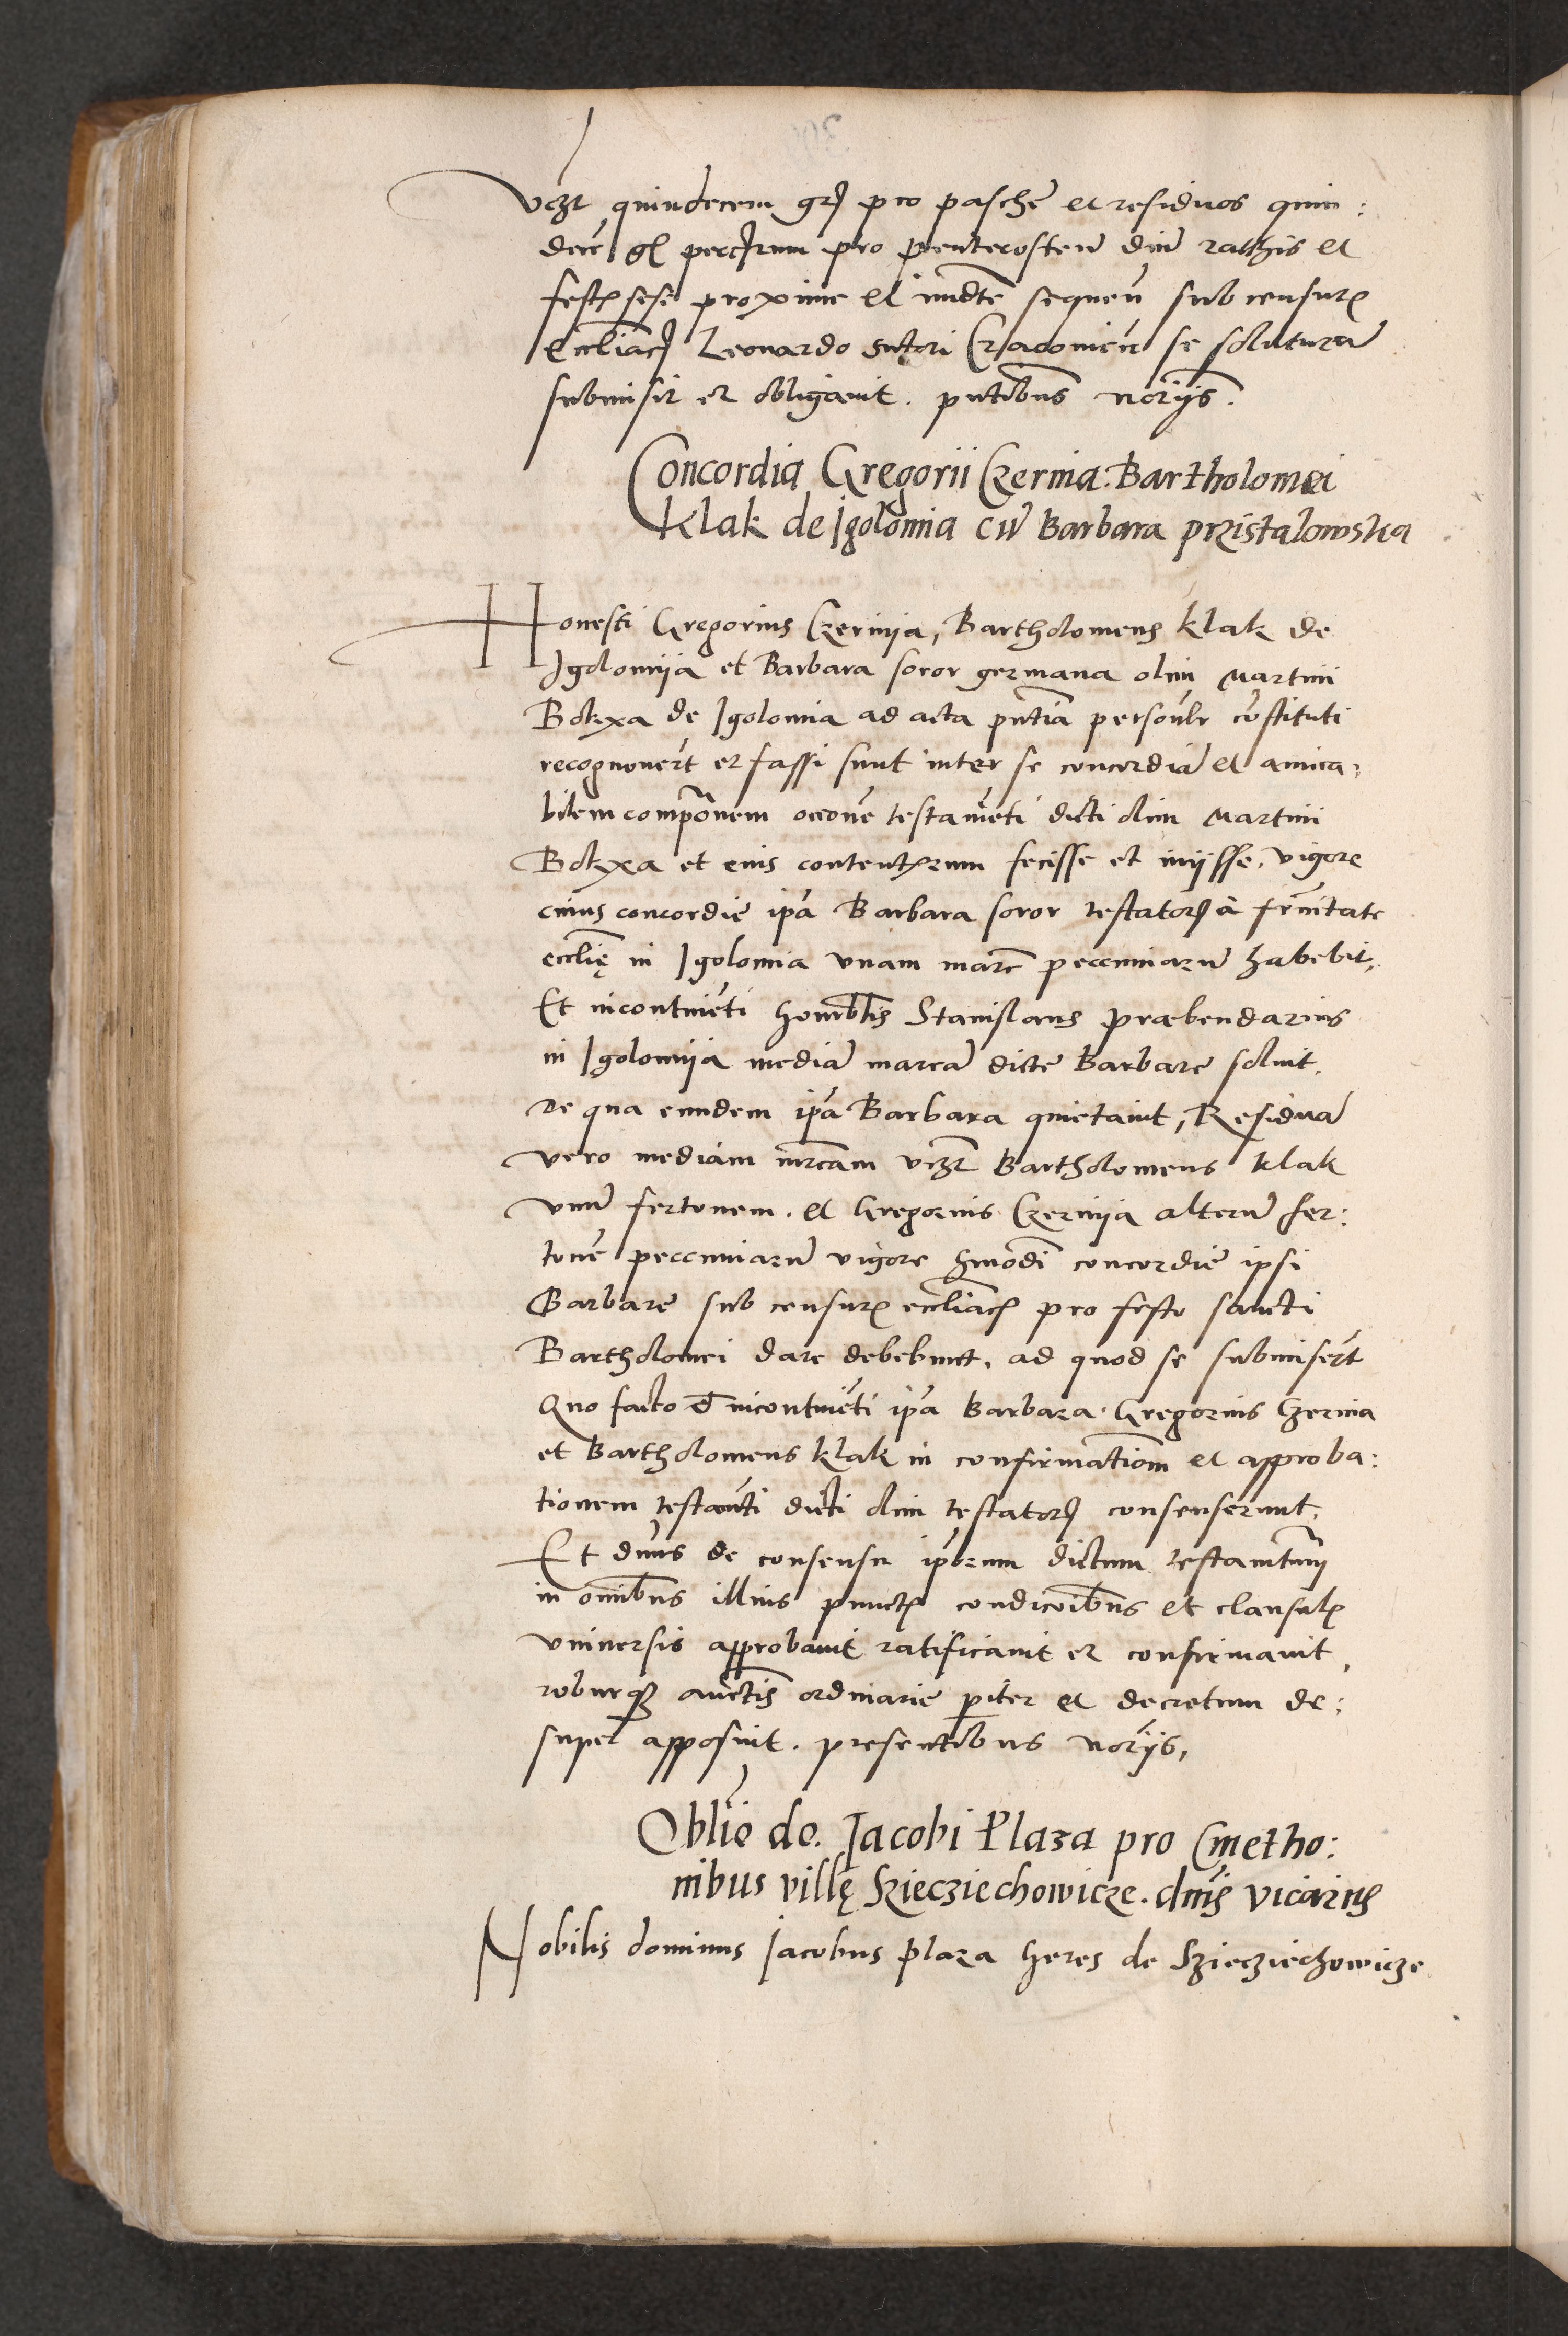 vczt quindecem grꝭ pro paschē et residuos quin:
decē gꝭ pro Penthecosten diē rathis et
festꝭ sese proxime et imdte sequeñ sub censurꝭ
eccliacꝭ Leonardo sutori Cracovieñ se soluturā
submisit et obligavit. pntibus noriis.
Concordia Gregorii Czernia. Bartholomei
Klak de Igolomia cū Barbara przistalowska
Honesti Gregorius Czernija, Bartholomeus Klak de
Igolomija et Barbara soror germana olim Martini
de Igolomia ad acta pntia personlr cōstituti
recognoverūt et fassi sunt inter se concordiā et amica:
bilem compōnem occōne testamēti dicti olim Martini
et eius contentorum fecisse et iniisse. vigore
cuius concordie ipa Barbara soror testatorꝭ a frnitate
ecclię in Igolomia unam marc peccuniarū habebit,
Et incontinēti honorblis Stanislaus præbendarius
in Igolomija mediā marcā dicte Barbare solvit.
de qua eundem ipa Barbara quietavit, Residuā
vero mediam mrcam vczt Bartholomeus Klak
unū fertonem. et Gregorius Czernija alterū fer:
tonē peccuniarū vigore hmodi concordie ipsi
Barbare sub censurꝭ eccliacꝭ pro festo sancti
Bartholomei dare debebunt, ad quod se submiserūt
Quo facto incontinēti ipa Barbara. Gregorius Czernia
et Bartholomeus Klak in confirmationem et approba:
tionem testamti dicti olim testatorꝭ consenserunt,
Et dnus de consensu iporum dictum testamtum
in omibus illius punctꝭ condicoibus et clausulꝭ
universis approbavit ratificavit et confirmavit,
roburqꝫ auctis ordinarie pariter et decretum de:
super apposuit. presentibus noriis,
Oblio do. Jacobi Plaza pro Cmetho:
nibus villę Szieczichowicze. dnus vicarius
Nobilis dominus Jacobus Plaza heres de Szieczichowicze